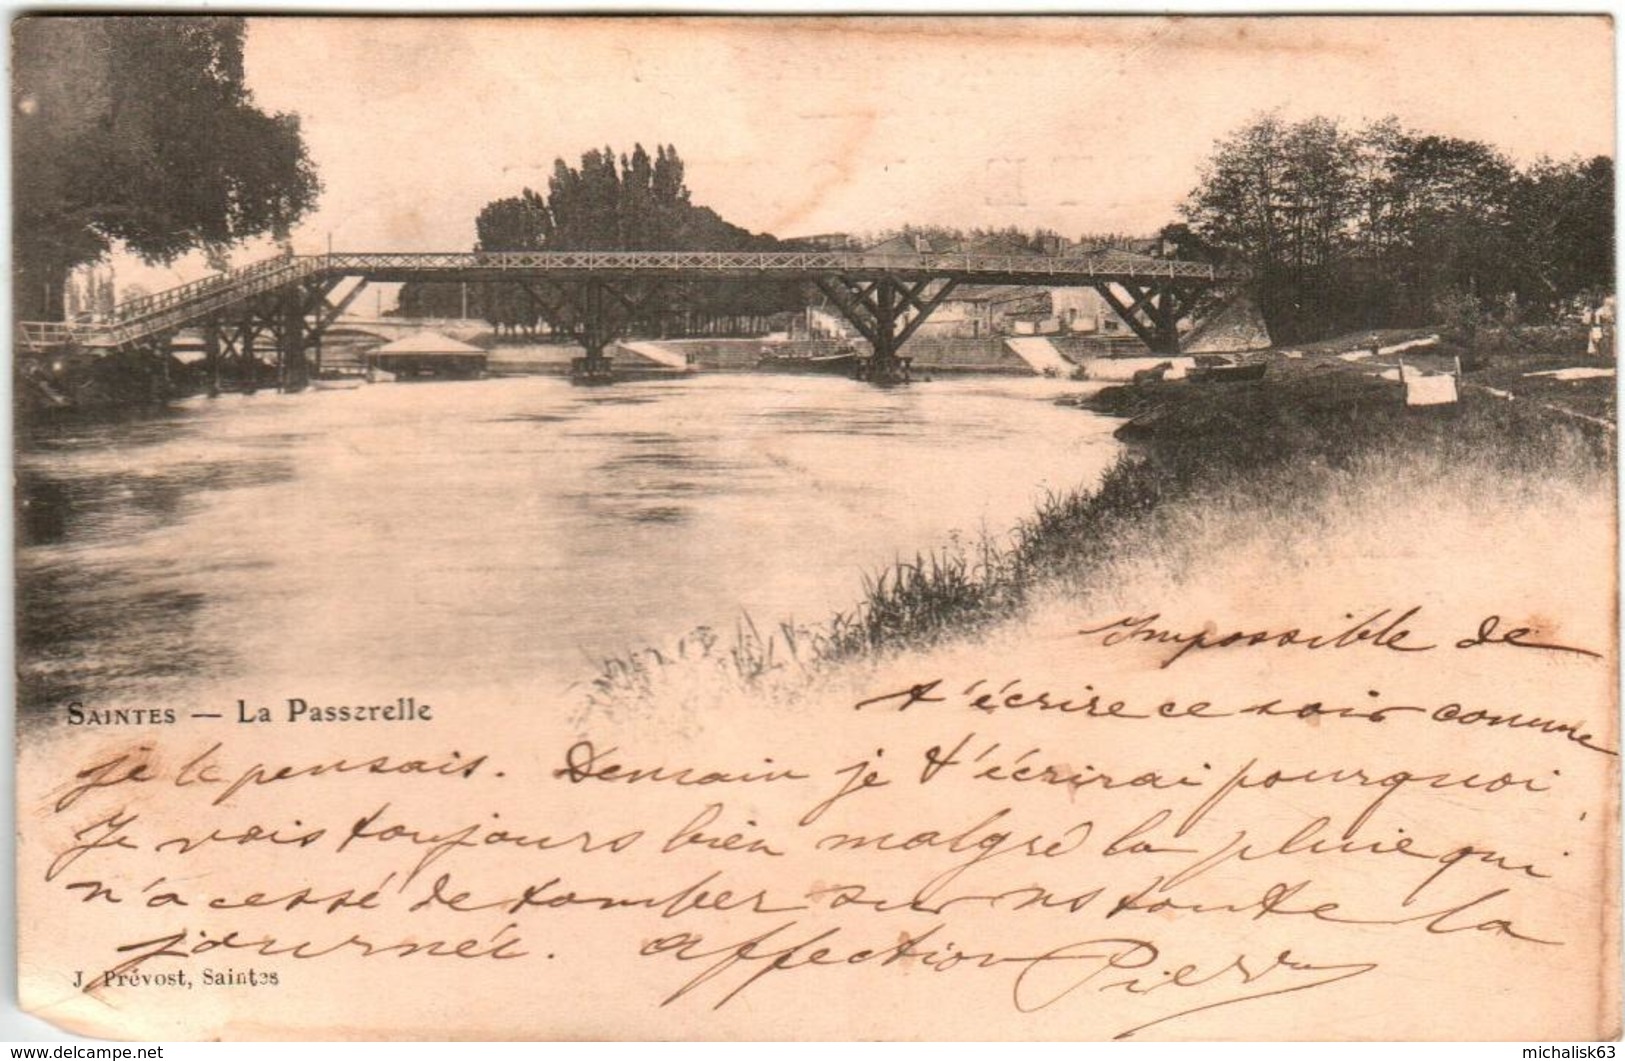 Impossible de
t'écrire ce soir comme
SAINTES — La Passerelle
je le pensais. Demain je t'écrirai pourquoi
Je vais toujours bien malgré la pluie qui
n'a cessé de tomber sur ns toute la
journée. affection Pierre
J. Prévost, Saintes
www.delcampe.net
michalisk63